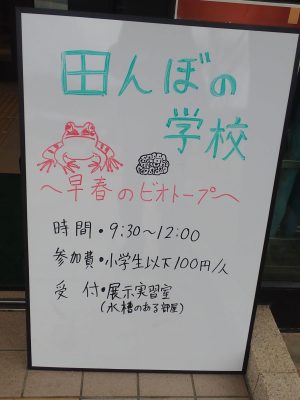 田んぼの
学校
～早春のビオトープ～
時間・9:30～12:00
参加費・小学生以下100円/人
受付・展示実習室
(水槽のある部屋)